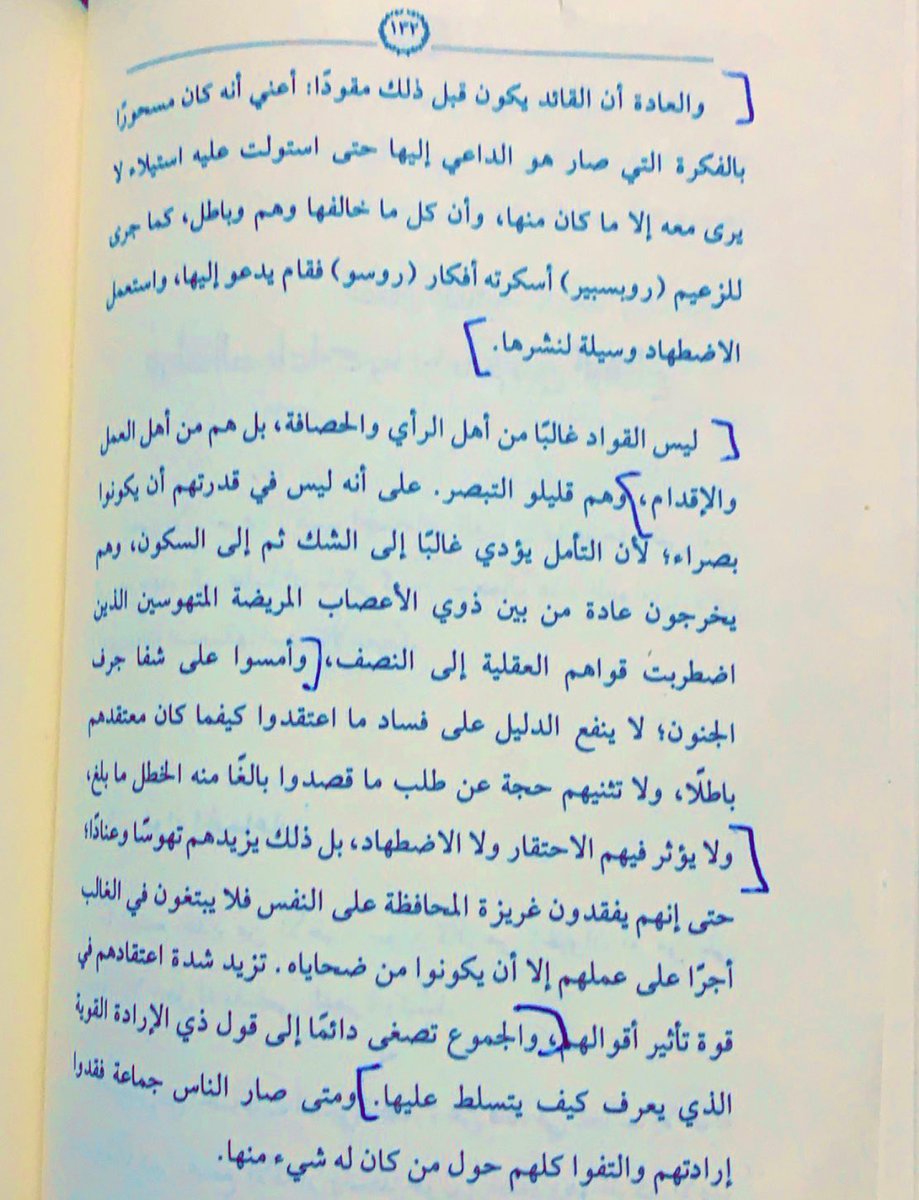 ١٣٢
والعادة أن القائد يكون قبل ذلك مقودًا: أعني أنه كان مسحورًا
بالفكرة التي صار هو الداعي إليها حتى استولت عليه استيلاء لا
يرى معه إلا ما كان منها، وأن كل ما خالفها وهم وباطل، كما جرى
للزعيم (روبسبير) أسكرته أفكار (روسو) فقام يدعو إليها، واستعمل
الاضطهاد وسيلة لنشرها.
ليس القواد غالبًا من أهل الرأي والحصافة، بل هم من أهل العمل
والإقدام، وهم قليلو التبصر. على أنه ليس في قدرتهم أن يكونوا
بصراء؛ لأن التأمل يؤدي غالبًا إلى الشك ثم إلى السكون، وهم
يخرجون عادة من بين ذوي الأعصاب المريضة المتهوسين الذين
اضطربت قواهم العقلية إلى النصف، وأمسوا على شفا جرف
الجنون؛ لا ينفع الدليل على فساد ما اعتقدوا كيفما كان معتقدهم
باطلًا، ولا تثنيهم حجة عن طلب ما قصدوا بالغًا منه الخطل ما بلغ،
ولا يؤثر فيهم الاحتقار ولا الاضطهاد، بل ذلك يزيدهم تهوسًا وعنادًا؛
حتى إنهم يفقدون غريزة المحافظة على النفس فلا يبتغون في الغالب
أجرًا على عملهم إلا أن يكونوا من ضحاياه. تزيد شدة اعتقادهم في
قوة تأثير أقوالهم، والجموع تصغى دائمًا إلى قول ذي الإرادة القوية
الذي يعرف كيف يتسلط عليها. ومتى صار الناس جماعة فقدوا
إرادتهم والتفوا كلهم حول من كان له شيء منها.